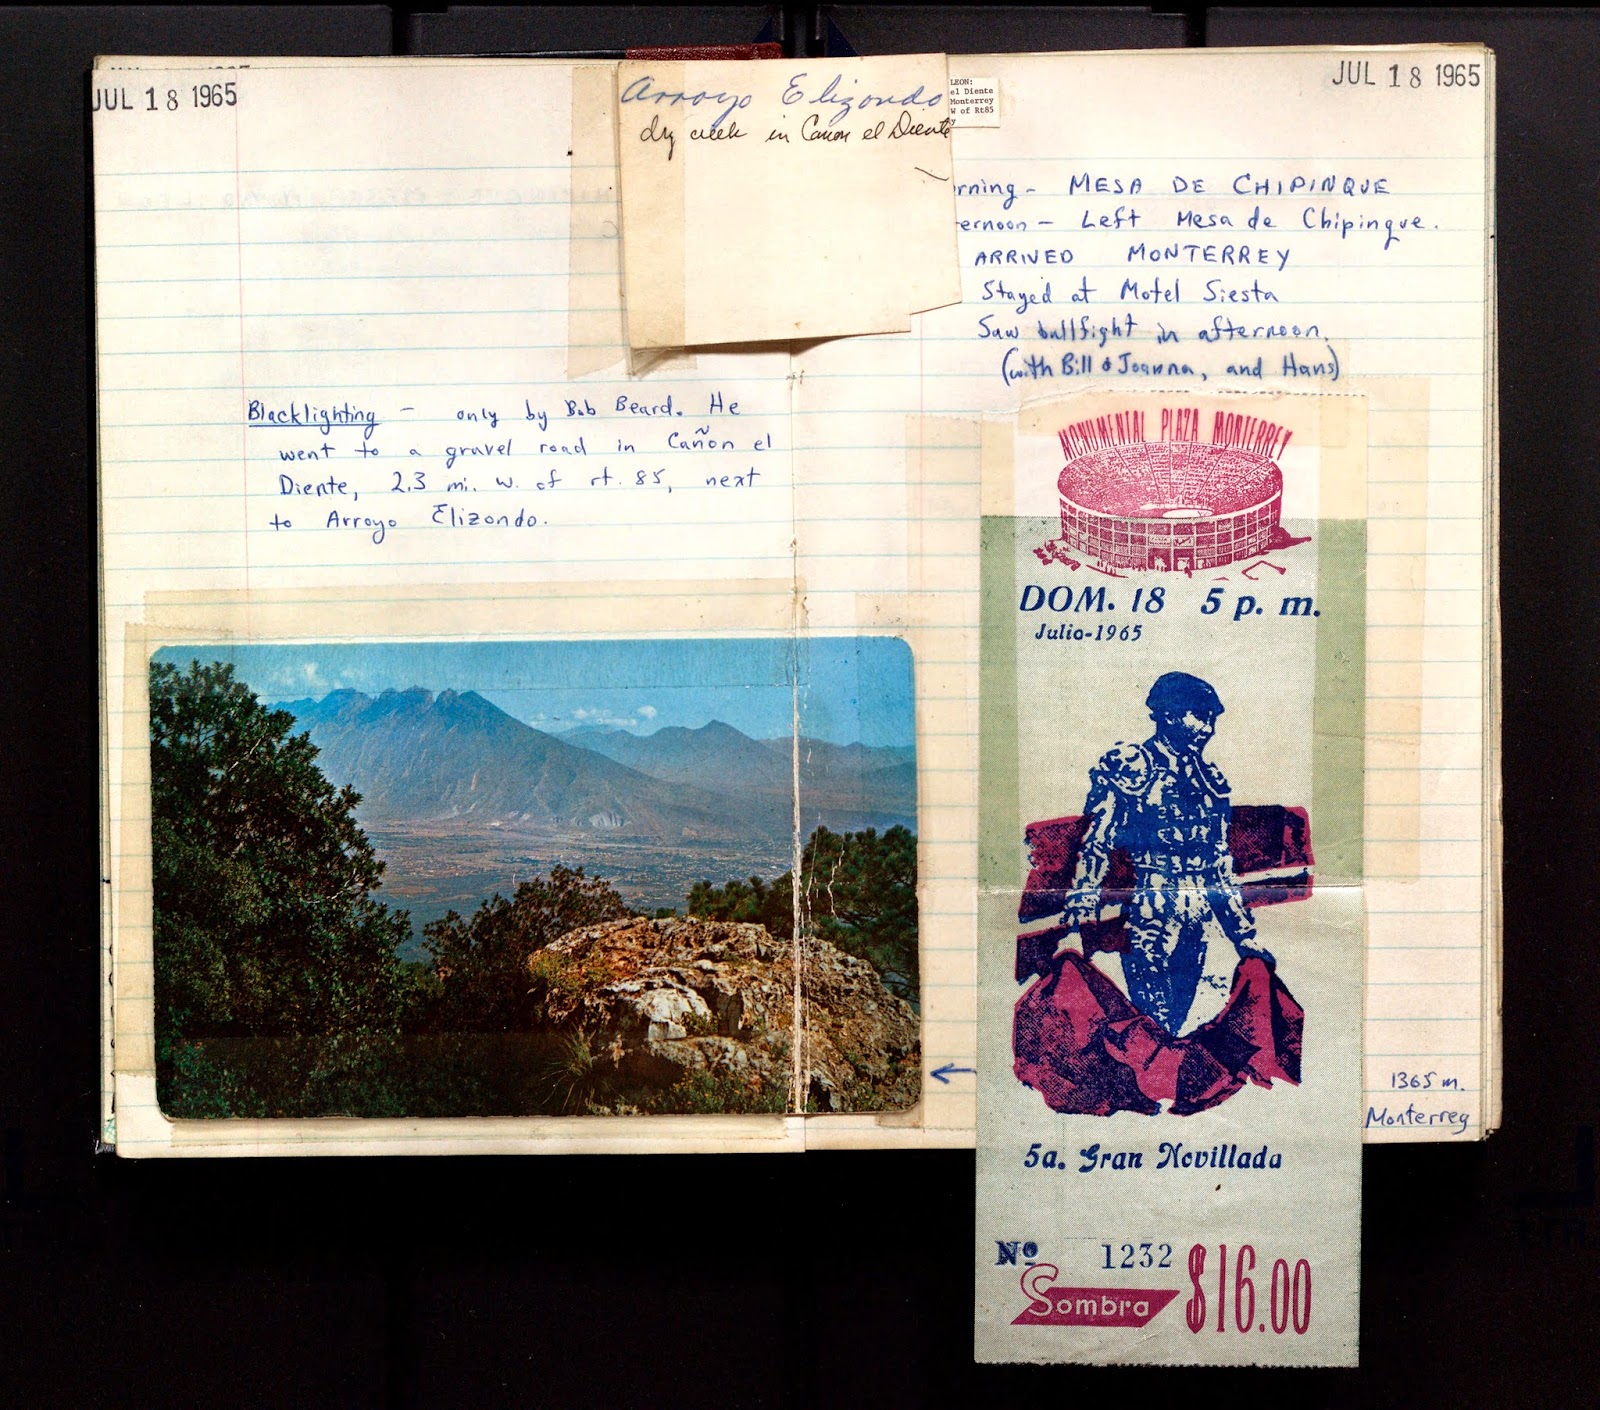 JUL 18 1965
Arroyo Elizondo
dry creek in Cañon el Diente
Blacklighting - only by Bob Beard. He
went to a gravel road in Cañon el
Diente, 2.3 mi. w. of rt. 85, next
to Arroyo Elizondo.
JUL 18 1965
LEON:
el Diente
Monterrey
W of Rt85
y
rning - MESA DE CHIPINQUE
ernoon - Left Mesa de Chipinque.
ARRIVED MONTERREY
Stayed at Motel Siesta
Saw bullfight in afternoon.
(with Bill & Joanna, and Hans)
MONUMENTAL PLAZA MONTERREY
DOM. 18 5 p. m.
Julio-1965
5a. Gran Novillada
Nº 1232
Sombra $16.00
1365 m.
Monterrey